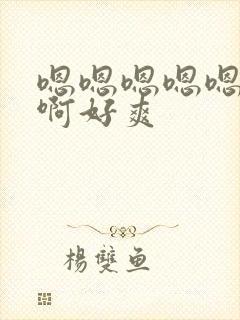 嗯嗯嗯嗯嗯
啊好爽
楊雙魚